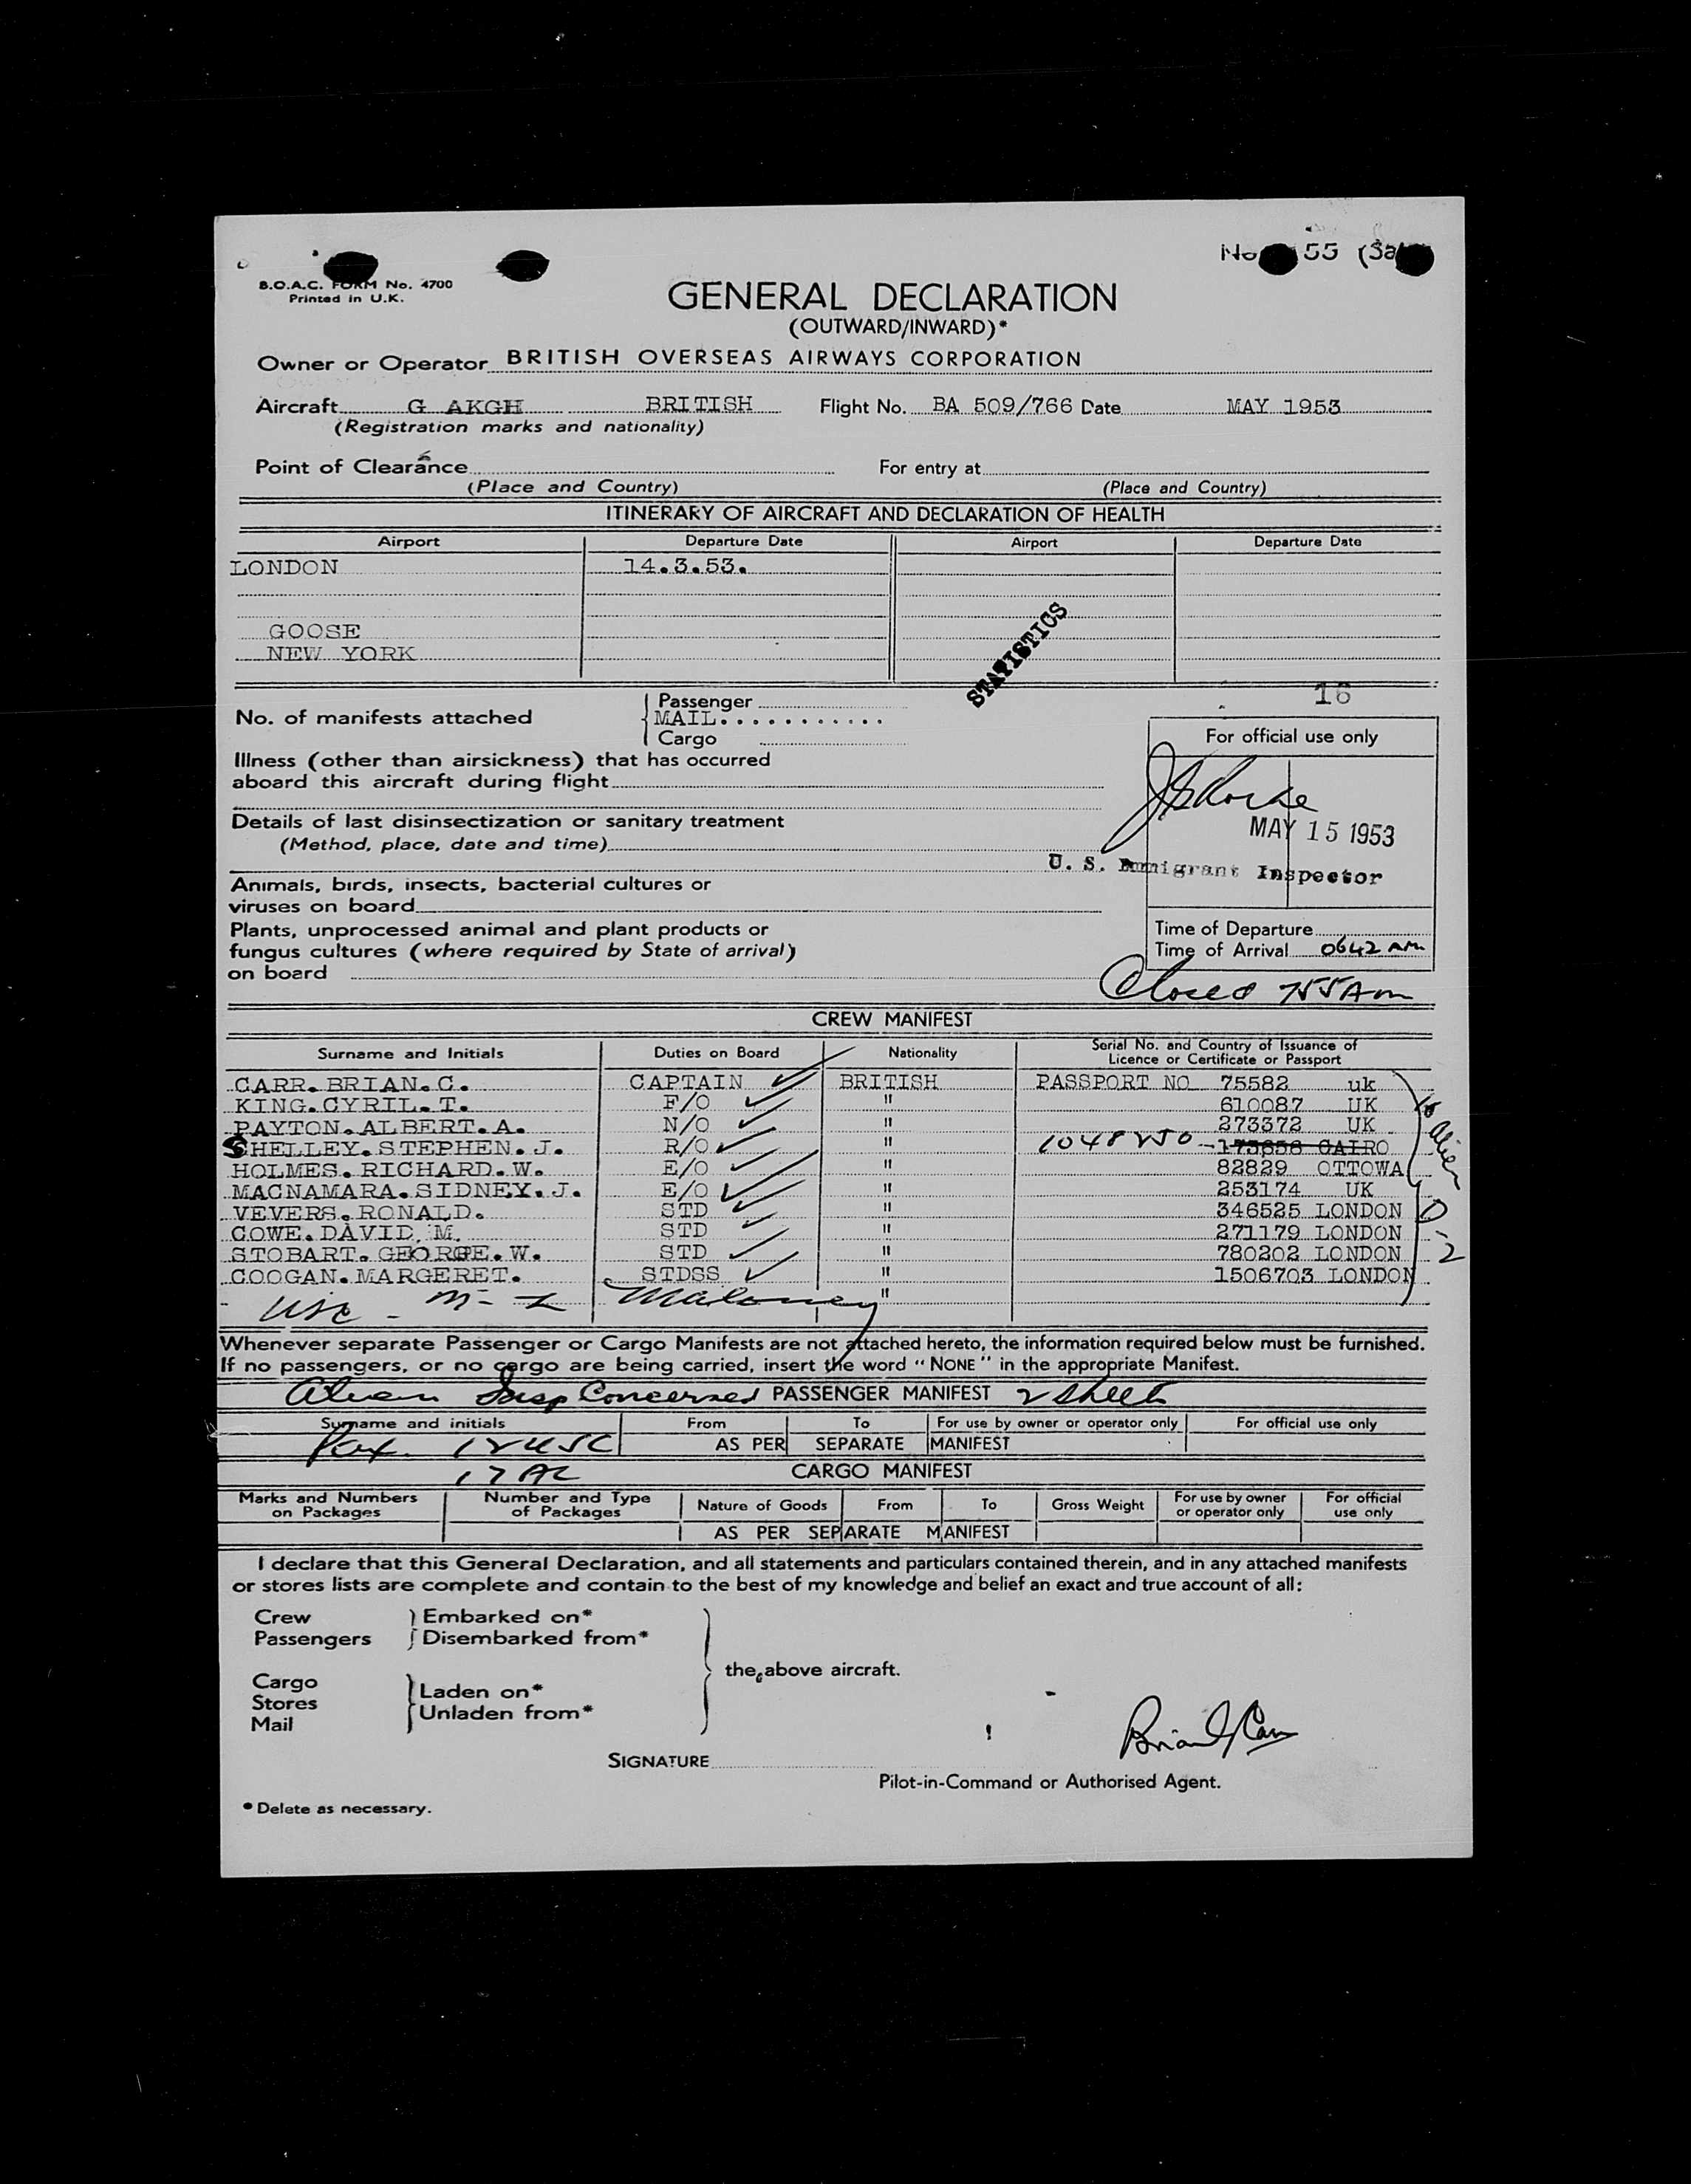 55 (Sa
B.O.A.C. FORM No. 4700
Printed in U.K.
GENERAL DECLARATION
(OUTWARD/INWARD)*
Owner or Operator BRITISH OVERSEAS AIRWAYS CORPORATION
Aircraft G AKGH BRITISH Flight No. BA 509/766 Date MAY 1953
(Registration marks and nationality)
Point of Clearance For entry at
(Place and Country) (Place and Country)
ITINERARY OF AIRCRAFT AND DECLARATION OF HEALTH
Airport Departure Date Airport Departure Date
LONDON 14.3.53.
GOOSE
NEW YORK
STATISTICS
16
No. of manifests attached
Passenger
MAIL...........
Cargo
For official use only
Illness (other than airsickness) that has occurred
aboard this aircraft during flight
Details of last disinsectization or sanitary treatment
(Method, place, date and time)
MAY 15 1953
U. S. Immigrant Inspector
Animals, birds, insects, bacterial cultures or
viruses on board
Plants, unprocessed animal and plant products or
fungus cultures (where required by State of arrival)
on board
Time of Departure
Time of Arrival 0642 AM
Closed 755 Am
CREW MANIFEST
Surname and Initials Duties on Board Nationality Serial No. and Country of Issuance of
Licence or Certificate or Passport
CARR. BRIAN. C. CAPTAIN BRITISH PASSPORT NO 75582 uk
KING. CYRIL. T. F/O " 610087 UK
PAYTON. ALBERT. A. N/O " 273372 UK
SHELLEY. STEPHEN. J. R/O " 1048250 CAIRO
HOLMES. RICHARD. W. E/O " 82829 OTTOWA
MACNAMARA. SIDNEY. J. E/O " 253174 UK
VEVERS. RONALD. STD " 346525 LONDON
COWE. DAVID. M. STD " 271179 LONDON
STOBART. GEORGE. W. STD " 780202 LONDON
COOGAN. MARGERET. STDSS " 1506703 LONDON
10 alien
D-2
usc - Maloney "
Whenever separate Passenger or Cargo Manifests are not attached hereto, the information required below must be furnished.
If no passengers, or no cargo are being carried, insert the word "NONE" in the appropriate Manifest.
Alien Insp Concerned PASSENGER MANIFEST 2 sheets
Surname and initials From To For use by owner or operator only For official use only
Pax. 12 USC AS PER SEPARATE MANIFEST
17 AL CARGO MANIFEST
Marks and Numbers on Packages Number and Type of Packages Nature of Goods From To Gross Weight For use by owner or operator only For official use only
AS PER SEPARATE MANIFEST
I declare that this General Declaration, and all statements and particulars contained therein, and in any attached manifests
or stores lists are complete and contain to the best of my knowledge and belief an exact and true account of all:
Crew
Passengers
Embarked on*
Disembarked from*
Cargo
Stores
Mail
Laden on*
Unladen from*
the above aircraft.
Brian C Carr
SIGNATURE
Pilot-in-Command or Authorised Agent.
* Delete as necessary.